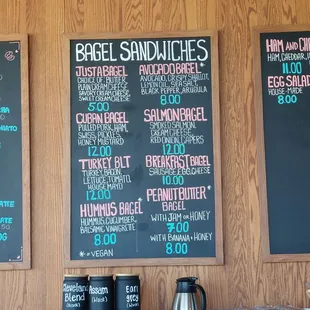 BAGEL SANDWICHES
JUST A BAGEL
CHOICE OF BUTTER,
PLAIN CREAM CHEESE
SAVORY CREAM CHEESE
SWEET CREAM CHEESE
5.00
CUBAN BAGEL
PULLED PORK, HAM,
SWISS, PICKLES,
HONEY MUSTARD
12.00
TURKEY BLT
TURKEY, BACON,
LETTUCE, TOMATO,
HOUSE MAYO
12.00
HUMMUS BAGEL*
HUMMUS, CUCUMBER,
BALSAMIC VINAIGRETTE
8.00
* = VEGAN
AVOCADO BAGEL*
AVOCADO, CRISPY SHALLOT,
LEMON OIL, SEA SALT,
BLACK PEPPER, ARUGULA
8.00
SALMON BAGEL
SMOKED SALMON,
CREAM CHEESE,
RED ONION, CAPERS
12.00
BREAKFAST BAGEL
SAUSAGE, EGG, CHEESE
10.00
PEANUT BUTTER*
BAGEL
WITH JAM OR HONEY
7.00
WITH BANANA + HONEY
8.00
HAM AND CH
HAM, CHEDDAR,
11.00
EGG SALAD
HOUSE-MADE
8.00
Cleveland
Blend
(black)
Assam
(black)
Earl
Grey
(black)